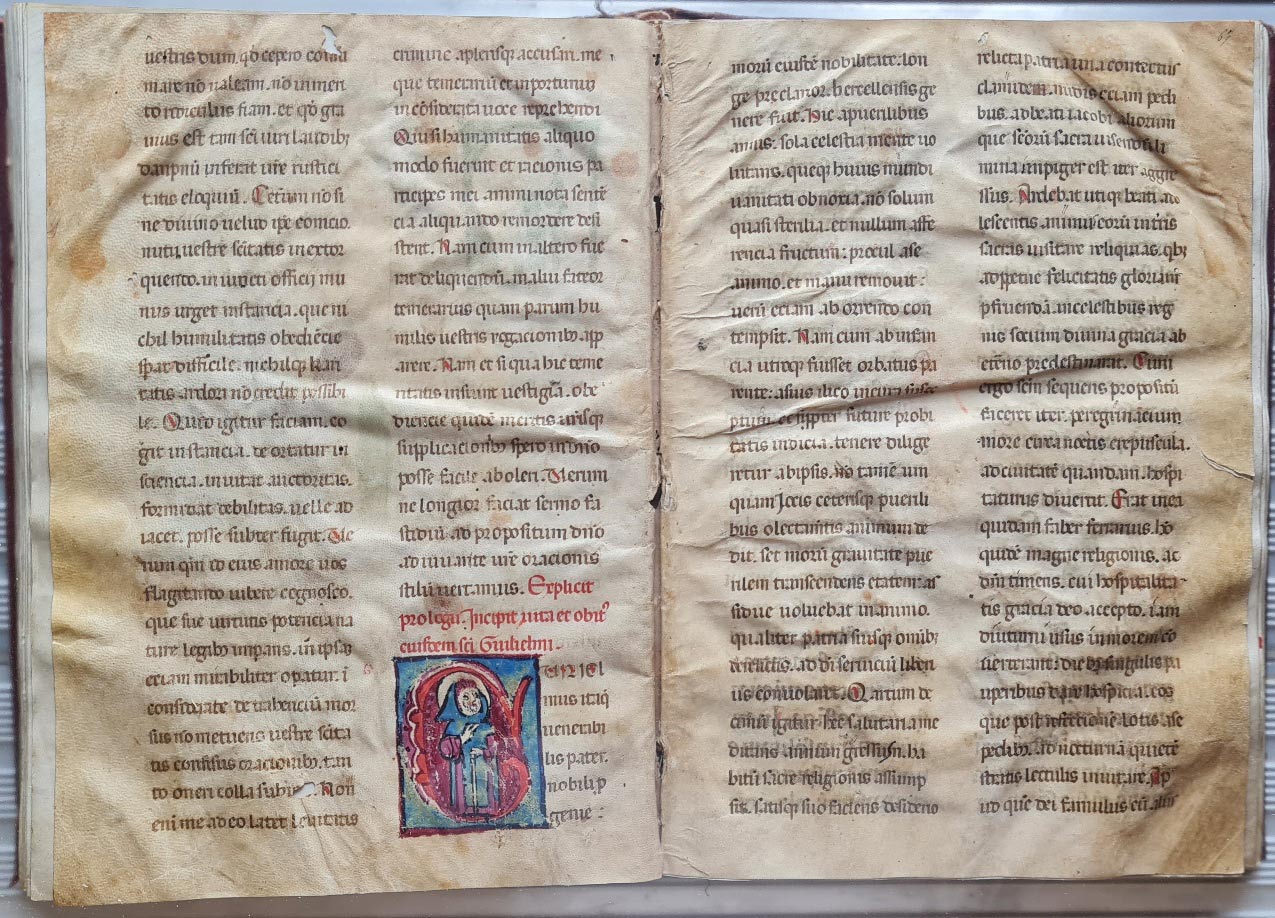 uestris dum qd cepero consu
mare nō ualeam. nō inmeri
to ridiculus fiam. et qđ gra
uius est tam sēi uiri laudibȝ
dampnū inferat ure rustici
tatis eloquiū. Cetum nō si
ne diuino uelud ipe conicio.
nutu uestre scītatis inextor
quendo. in iuncti officij mu
nus urget instancia. que ni
chil humilitatis obediēcie
spat difficile. nichilqȝ kari
tatis ardori nō credit possibi
le. Quid igitur faciam. co
git instancia. de ortatur in
sciencia. inuitat auctoritas.
formidat debilitas. uelle ad
iacet. posse subter fugit. Ve
rum qm id eius amore uos
flagitando iubere cognosco.
que sue uirtutis potencia na
ture legibȝ inpans. in ipsȝ
eciam mirabiliter opatur. i
considerate detrahenciū mor
sus nō metuens uestre scīta
tis confisus oracionibȝ. tan
to oneri colla subi Non
eni me adeo latet leuitatis
crimine aplerisqȝ accusari. me
que temerariū et inportunū
inconsiderata uoce reprehendi
Qui si humanitatis aliquo
modo fuerint et racionis pa
rticipes mei animi nota sentē
cia aliquando remordere desi
stent. Nam cum in altero fue
rat deliquendū. malui fateor
temerarius quam parum hu
milis uestris rogacionibȝ app
arere. Nam et si qua hic teme
ritatis insunt uestigia. obe
diencie quidē meritis urisqȝ
supplicacionibȝ spero indnō
posse facile aboleri. Verum
ne longior faciat sermo fa
stidiū ad propositum dnō
adiuuante ure oracionis
stilū uertamus. Explicit
prologȝ. Incipit uita et obit⁹
eiusdem sci Guilielmi.
GUILIEL
mus itaqȝ
uenerabi
lis pater.
nobili p
genie :
67
morū eiusdē nobilitate. lon
ge preclarior. hercellensis ge
nere fuit. Hic apuerilibus
annis. sola celestia mente uo
luitans. queqȝ huius mundi
uanitati obnoxia. nō solum
quasi sterilia. et nullum affe
rencia fructum: procul a se
animo. et manu remouit:
uerū eciam ab orrendo con
tempsit. Nam cum ab infan
cia utroqȝ fuisset orbatus pa
rente: asuis ilico incura susce
ptus. et ppter future probi
tatis indicia. tenere dilige
retur ab ipsis. Nō tamē um
quam Iocis ceterisqȝ puerili
bus olectamtis animum de
dit. set morū grauitate pue
rilem transcendens etatem: as
sidue uoluebat in animo.
qualiter patria suisqȝ omibȝ
derelictis. ad di seruiciū liben
us conuolaret. Quartum de
cimū igitur hec salutari ame
diuinis annum gressusqȝ. ha
bitū sacre religionis assump
sit. satisqȝ suo faciens desiderio
relicta patria una contectus
clamidem. nudis eciam pedi
bus. ad beati iacobi aliorum
que scōrum sacra uisendi li
mina impiger est iter aggre
ssus. Ardebat utiqȝ beati. ado
lescentis. animus. eorū intimis
sacras uisitare reliquias. qbȝ
adpetue felicitatis gloriam
pfruendā. incelestibus reg
nis socium diuina gracia ab
eterno predestinarat. Cum
ergo scm sequens propositū
faceret iter. peregrinacium
more circa noctis crepuscula.
ad ciuitatē quandam. hospi
taturus diuertit. Erat inea
quidam faber ferrarius. hō
quidē magne religionis. ac
dm timens. cui hospitalita
tis gracia deo accepto. iam
diuturni usus in morem cō
uerterant: diebȝ singulis pa
uperibus dare hospicia. eos
que post refectionē lotis a se
pedibȝ. ad nocturnā quietē
stratis lectulis inuitare. Ap
ud quē dei famulus cū